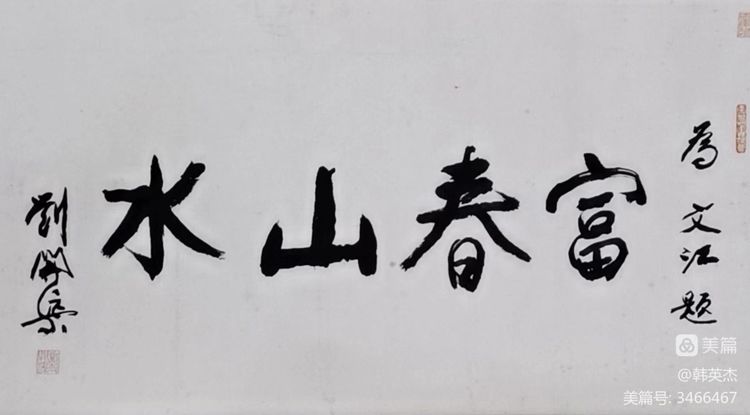 為文江題
富春山水
劉開渠
美篇
@韩英杰
美篇号: 3466467